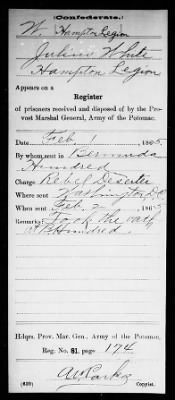 (Confederate.)
W. Hampton Legion
Julius White
Hampton Legion
Appears on a
Register
of prisoners received and disposed of by the Pro-
vost Marshal General, Army of the Potomac.
Date Feb 1, 1865.
By whom sent in Bermuda
Hundred
Charge Rebel Deserter
Where sent Washington D.C.
When sent Feb. 2, 1865
Remarks: Took the oath
at B. Hundred.
Hdqrs. Prov. Mar. Gen., Army of the Potomac,
Reg. No. 81, page 174
(639) Copyist.